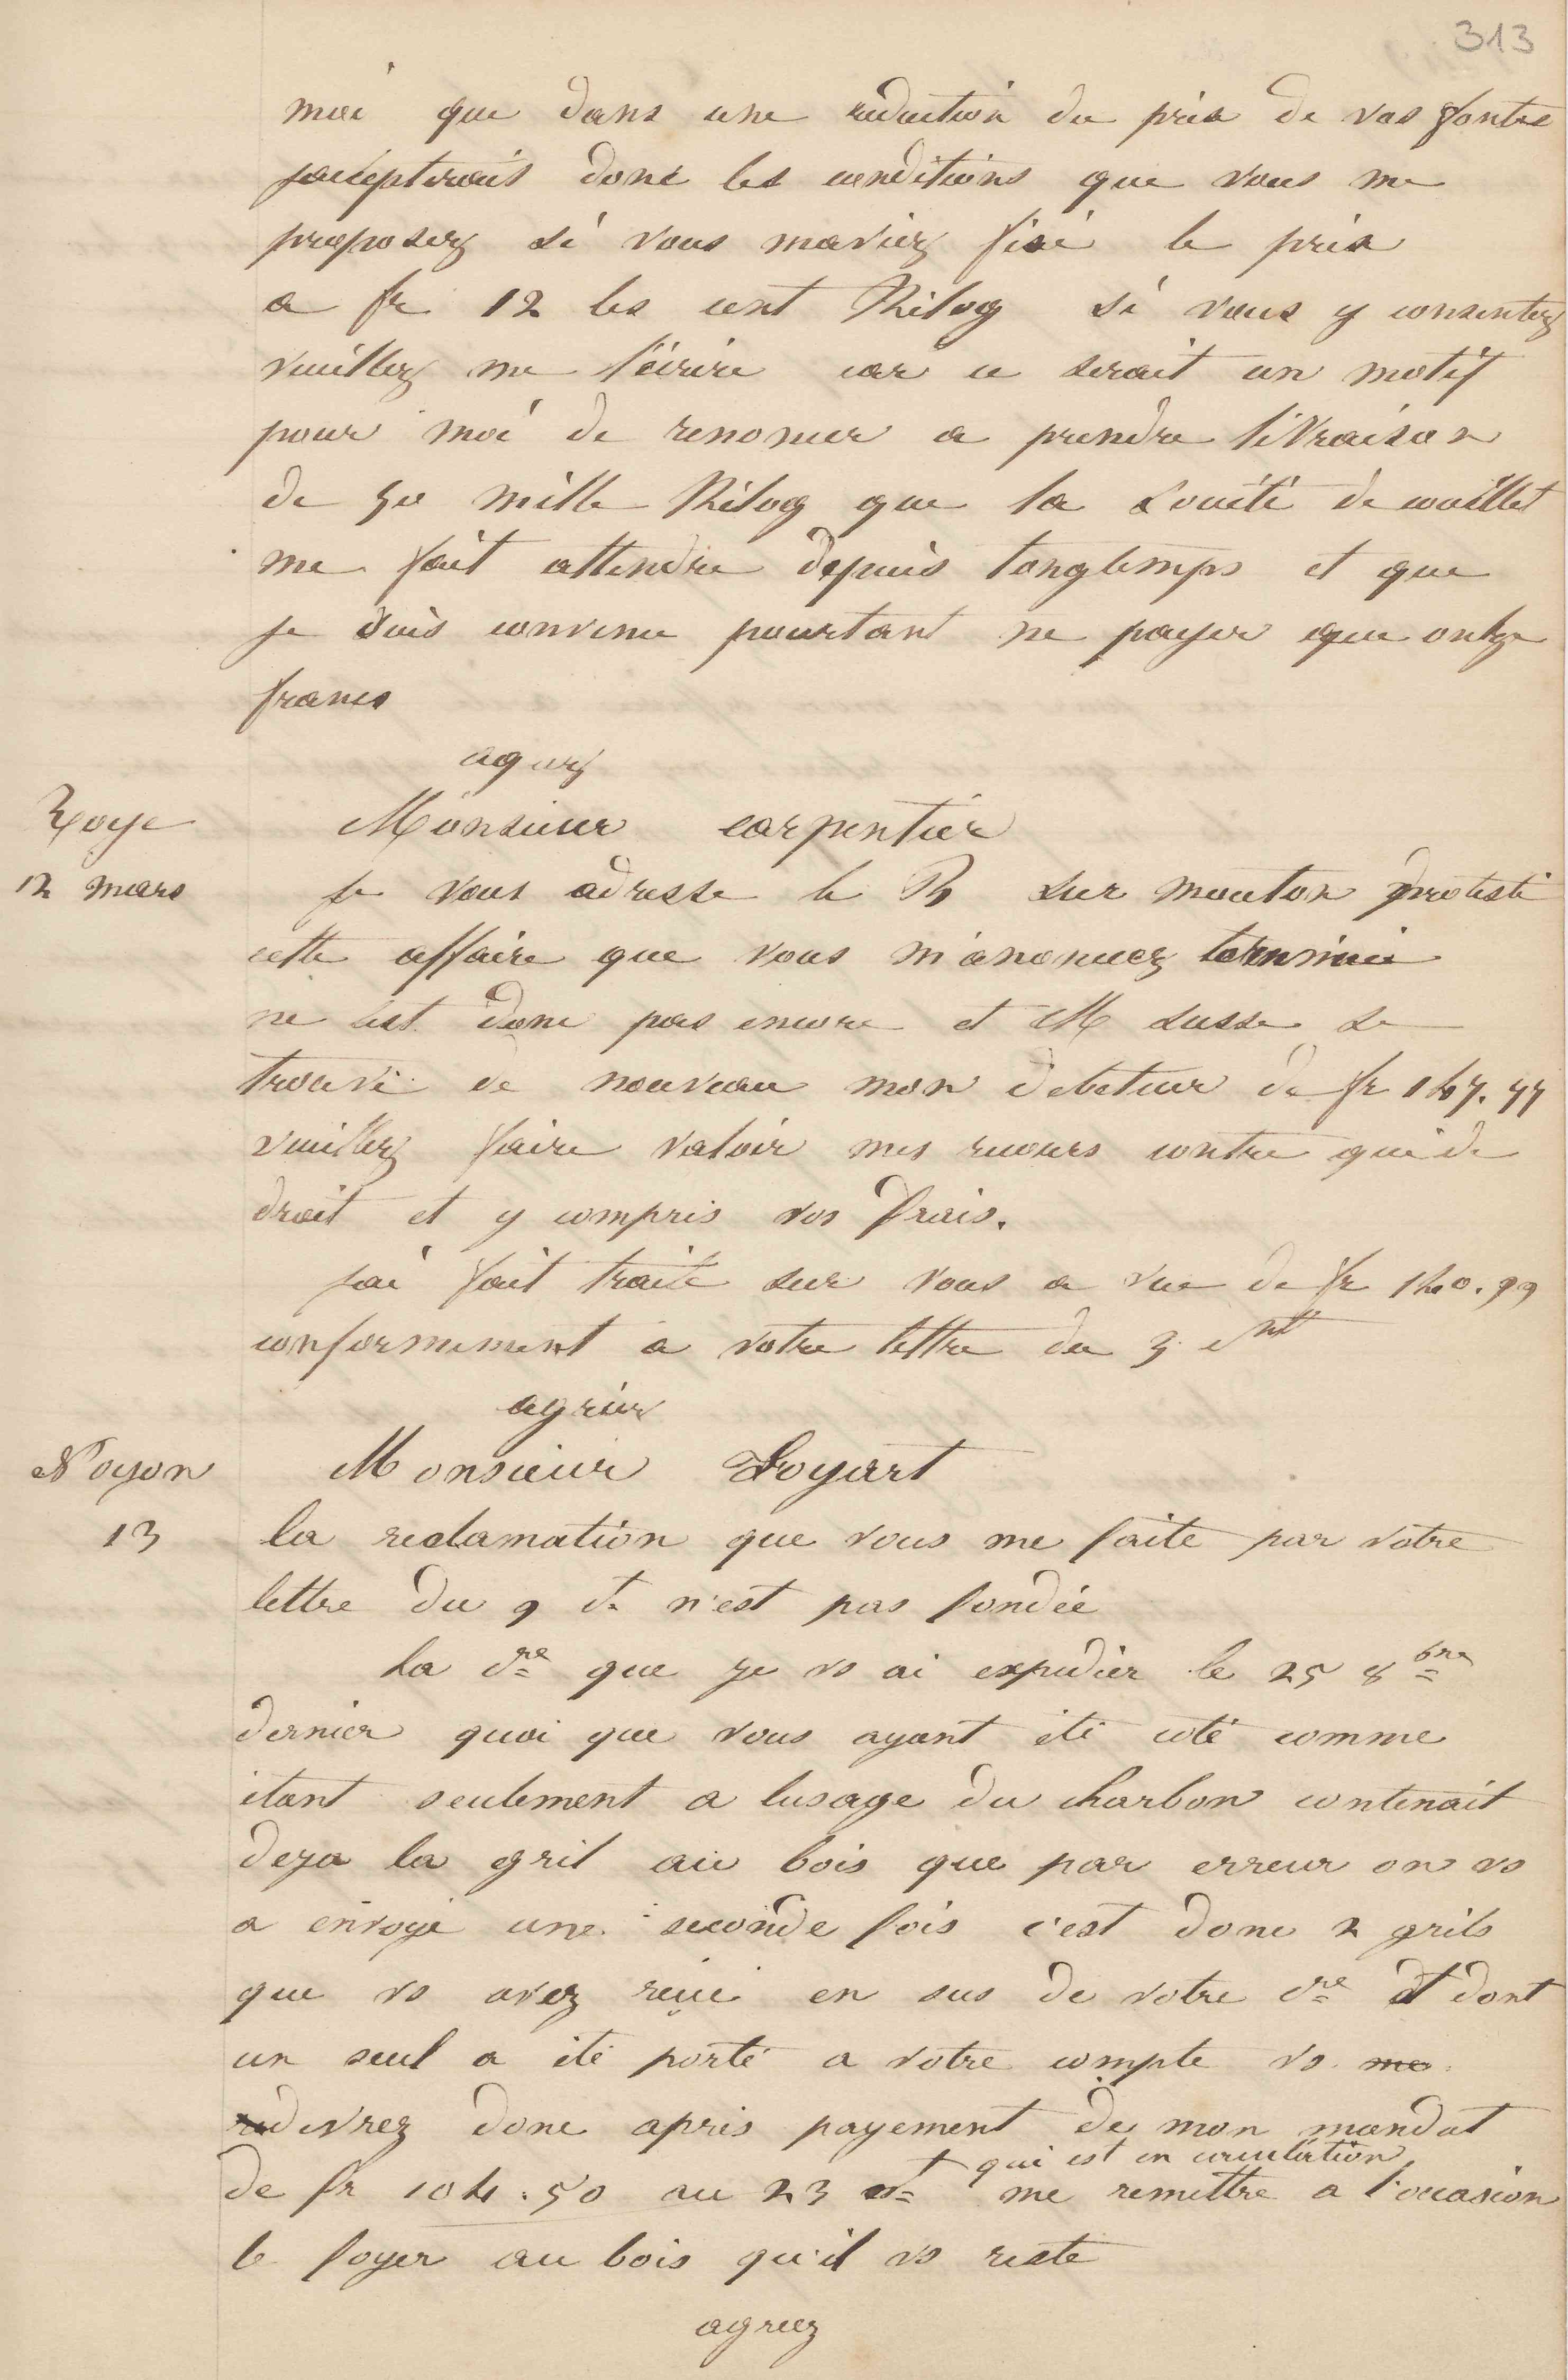 313
moi que dans une reduction du prix de vos fontes
jaccepterais donc les conditions que vous me
proposez si vous maviez fixé le prix
a fr 12 les cent Kilog si vous y consentez
veuillez me l'écrire car ce serait un motif
pour moi de renoncer a prendre livraison
de 50 mille Kilog que la Société de couillet
me fait attendre depuis longtemps et que
je suis convenu pourtant ne payer que onze
francs
agréez
Roye Monsieur carpentier
12 mars je vous adresse le B sur mouton protesté
cette affaire que vous m'anoncez terminée
ne lest donc pas encore et M susse se
trouve de nouveau mon debeteur de fr 147.77
veuillez faire valoir mes recours contre qui de
droit et y compris vos frais.
jai fait traite sur vous a vue de fr 140.99
conformement a votre lettre du 3 ct
agréez
Noyon Monsieur Loyart
13 la reclamation que vous me faite par votre
lettre du 9 ct n'est pas fondée
la cre que je vs ai expedier le 25 8bre
dernier quoi que vous ayant été coté comme
étant seulement a lusage du charbon contenait
deja la gril au bois que par erreur on vs
a envoyé une seconde fois c'est donc 2 grils
que vs avez reçu en sus de votre cre et dont
un seul a été porté a votre compte vs me
redevrez donc apres payement de mon mandat
qui est en circulation
de fr 104.50 au 23 ct me remettre a l'occasion
le foyer au bois qu'il vs reste
agreez